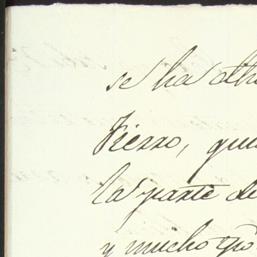 se ha
Fierro, que
la parte de
y mucho